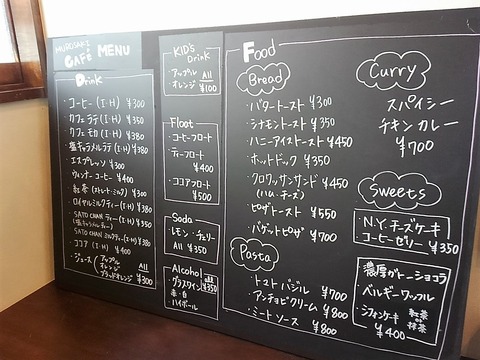 MUROSAKI
CAFE MENU
Drink
・コーヒー(I・H) ¥300
・カフェラテ(I・H) ¥350
・カフェモカ(I・H) ¥380
・塩キャラメルラテ(I・H) ¥380
・エスプレッソ ¥300
・ウィンナーコーヒー ¥400
・紅茶(ストレート・ミルク) ¥300
・ロイヤルミルクティー(I・H) ¥380
・SATO CHAN ティー(I・H) ¥350
SATO CHAN ミルクティー(I・H) ¥380
・ココア(I・H) ¥400
・ジュース(アップル
オレンジ
ブラッドオレンジ) All ¥300
KID's Drink
・アップル
オレンジ All ¥100
Float
・コーヒーフロート
・ティーフロート
¥400
・ココアフロート
¥500
Soda
・レモン・チェリー
All ¥350
Alcohol
・グラスワイン ¥350
赤・白
・ハイボール
Food
Bread
・バタートースト ¥300
・シナモントースト ¥350
・ハニーアイストースト ¥450
・ホットドッグ ¥350
・クロワッサンサンド ¥450
(ハム・チーズ)
・ピザトースト ¥550
・バゲットピザ ¥700
Pasta
・トマトバジル ¥700
・アンチョビクリーム ¥800
・ミートソース ¥800
Curry
スパイシー
チキンカレー
¥700
Sweets
・N.Y.チーズケーキ
・コーヒーゼリー ¥350
・濃厚ガトーショコラ
・ベルギーワッフル
・シフォンケーキ 紅茶 or 抹茶
¥400